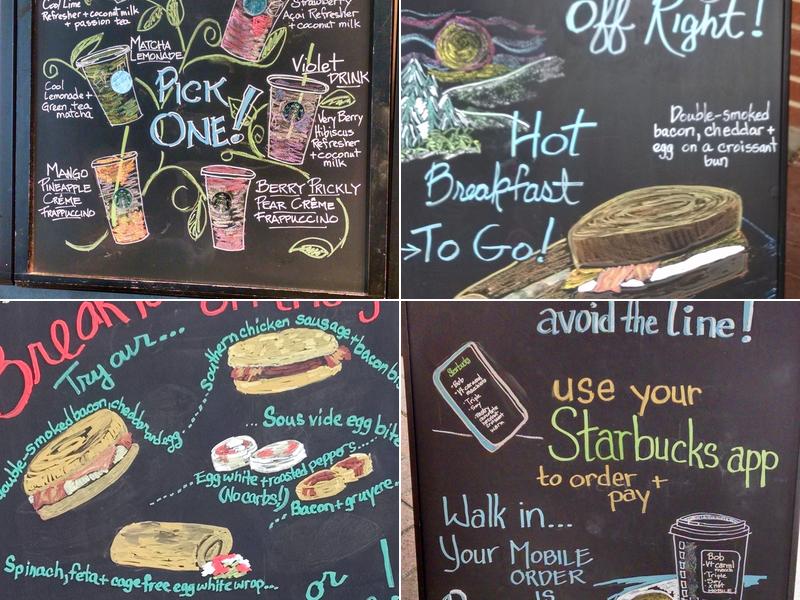 Cool Lime
Refresher + coconut milk
+ passion tea
Strawberry
Açai Refresher
+ coconut milk
MATCHA
LEMONADE
Cool
Lemonade +
Green tea
matcha
PICK
ONE!
Violet
DRINK
Very Berry
Hibiscus
Refresher
+ coconut
milk
MANGO
PINEAPPLE
CRÈME
FRAPPUCCINO
BERRY PRICKLY
PEAR CRÈME
FRAPPUCCINO
Off Right!
Double-smoked
bacon, cheddar +
egg on a croissant
bun
Hot
Breakfast
To Go!
Try our...
Southern chicken sausage + bacon
double-smoked bacon, cheddar and egg
...Sous vide egg bite
Egg white + roasted peppers....
(No carbs!)
Bacon + gruyere
Spinach, feta + cage free egg white wrap...
or
avoid the line!
Starbucks
use your
Starbucks app
to order +
pay
Walk in...
Your MOBILE
ORDER
IS
Bob
Triple
Soy